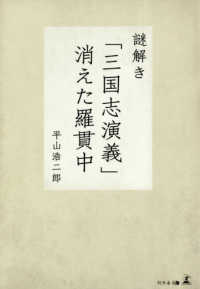 謎解き
「三国志演義」
消えた羅貫中
平山浩二郎